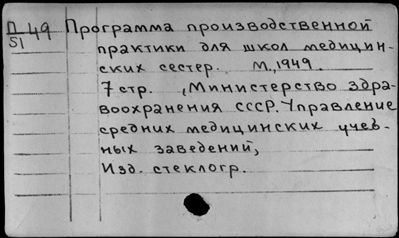 П 49 Программа производственной
51 практики для школ медицин-
ских сестер. М., 1949.
7 стр. , Министерство здра-
воохранения СССР. Управление
средних медицинских учеб-
ных заведений,
Изд. стеклогр.